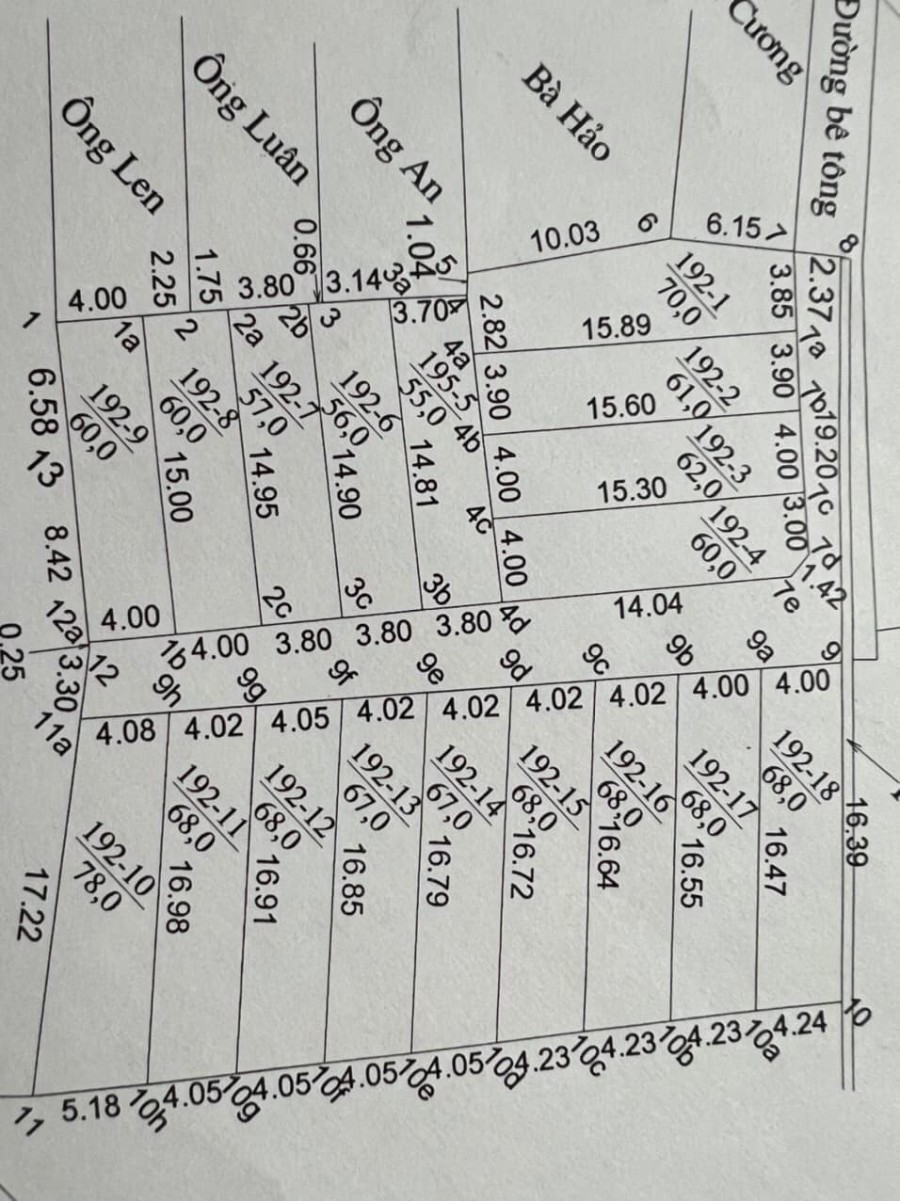 Đường bê tông
Cương
Bà Hảo
Ông An
Ông Luân
Ông Len
8
7
6.15
6
10.03
5
1.04
4
3.70
3a
3.14
3
0.66
2b
3.80
2a
1.75
2
2.25
1a
4.00
1
2.37
3.85
7a
192-1
70,0
15.89
2.82
4a
3.90
7b
192-2
61,0
15.60
3.90
4b
19.20
4.00
7c
192-3
62,0
15.30
4.00
4c
3.00
7d
1.42
7e
192-4
60,0
14.04
4.00
4d
195-5
55,0
14.81
3b
3.80
192-6
56,0
14.90
3c
3.80
192-7
57,0
14.95
2c
3.80
192-8
60,0
15.00
1b
4.00
192-9
60,0
4.00
6.58
13
8.42
12a
0.25
12
3.30
11a
9
4.00
9a
4.00
9b
4.02
9c
4.02
9d
4.02
9e
4.02
9f
4.05
9g
4.02
9h
4.08
192-18
68,0
16.47
16.39
192-17
68,0
16.55
192-16
68,0
16.64
192-15
68,0
16.72
192-14
67,0
16.79
192-13
67,0
16.85
192-12
68,0
16.91
192-11
68,0
16.98
192-10
78,0
17.22
10
4.24
10a
4.23
10b
4.23
10c
4.23
10d
4.05
10e
4.05
10f
4.05
10g
4.05
10h
5.18
11